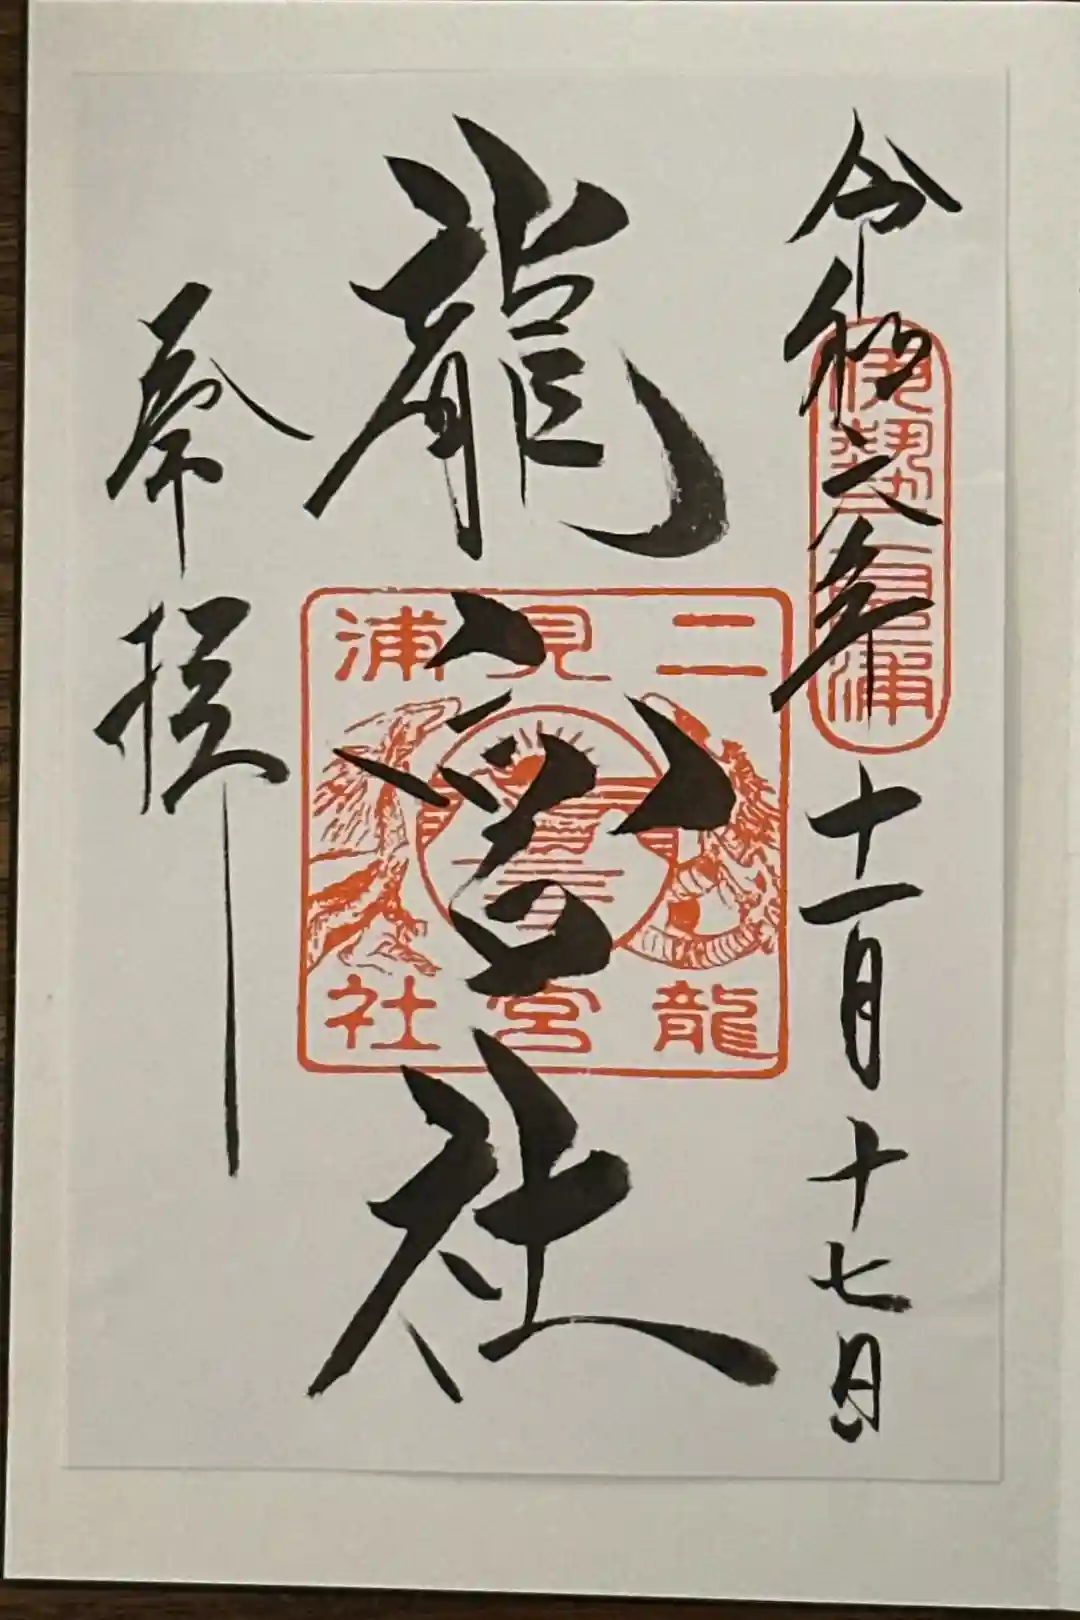 令和六年十一月十七日
伊勢二見浦
龍宮社
二見浦
龍宮社
奉拝